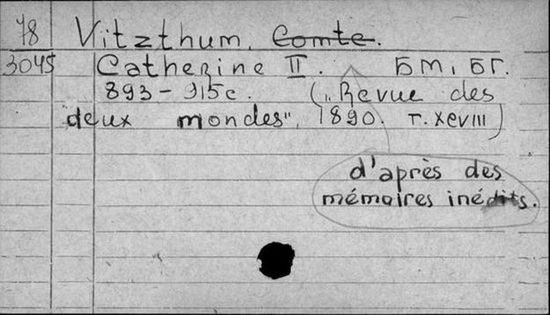 78 Vitzthum, Comte.
3045 Catherine II. БМ, БГ.
893-915с. („Revue des
deux mondes", 1890. т. XCVIII)
d'après des
mémoires inédits.